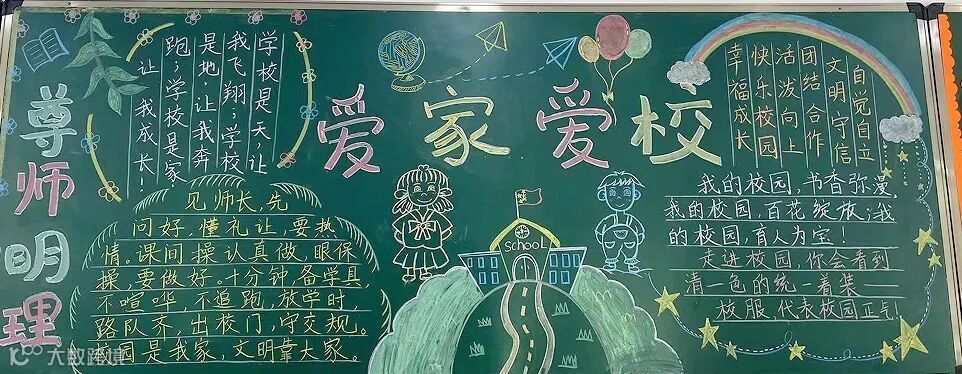 尊师明理
学校是天，让
我飞翔；学校
是地，让我奔
跑；学校是家，
让我成长！
爱家爱校
自觉自立
文明守信
团结合作
活泼向上
快乐校园
幸福成长
见师长，先
问好，懂礼让，要热
情。课间操认真做，眼保
操，要做好。十分钟备学具，
不喧哗，不追跑，放学时
路队齐，出校门，守交规。
校园是我家，文明靠大家。
school
我的校园，书香弥漫，
我的校园，百花绽放；我
的校园，育人为宝！
走进校园，你会看到
清一色的统一着装——
校服，代表校园正气
大数跨境